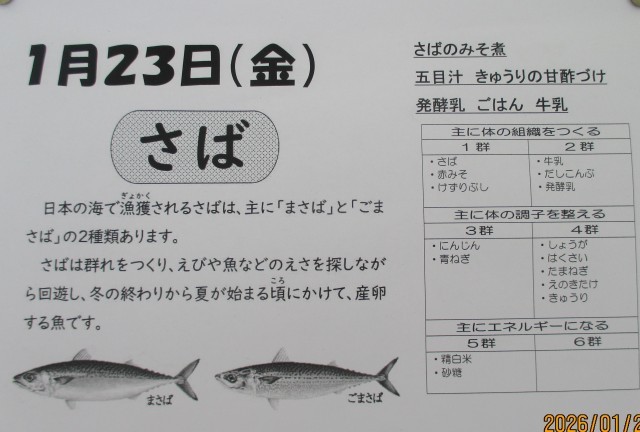 1月23日(金)
さば
日本の海で漁獲されるさばは、主に「まさば」と「ごま
ぎょかく
さば」の2種類あります。
さばは群れをつくり、えびや魚などのえさを探しなが
ら回遊し、冬の終わりから夏が始まる頃にかけて、産卵
ころ
する魚です。
まさば
ごまさば
さばのみそ煮
五目汁 きゅうりの甘酢づけ
発酵乳 ごはん 牛乳
主に体の組織をつくる
1群 2群
・さば
・赤みそ
・けずりぶし
・牛乳
・だしこんぶ
・発酵乳
主に体の調子を整える
3群 4群
・にんじん
・青ねぎ
・しょうが
・はくさい
・たまねぎ
・えのきたけ
・きゅうり
主にエネルギーになる
5群 6群
・精白米
・砂糖
2026/01/2